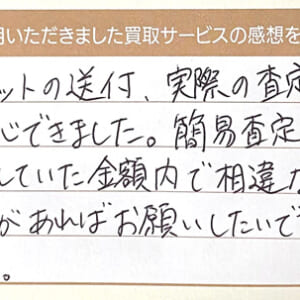 用いただきました買取サービスの感想を
ットの送付、実際の査定
心できました。簡易査定
していた金額内で相違が
があればお願いしたいで
。